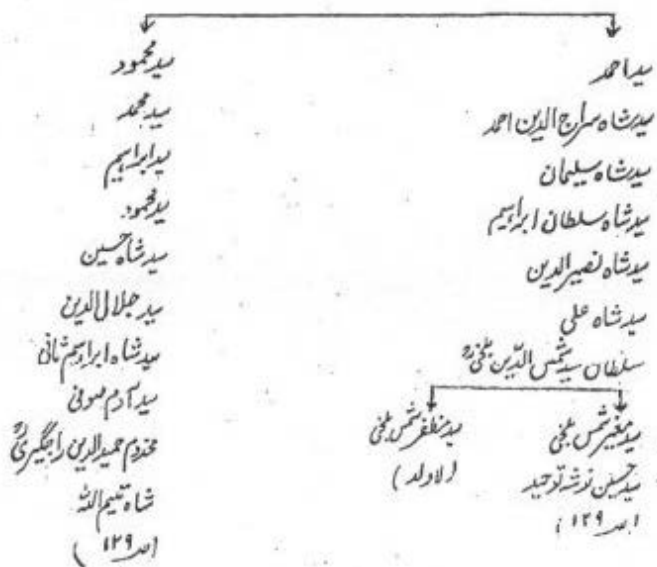 سید احمد
سید شاہ سراج الدین احمد
سید شاہ سلیمان
سید شاہ سلطان ابراہیم
سید شاہ نصیر الدین
سید شاہ علی
سلطان سید شمس الدین بلخی رح
سید معز شمس بلخی
سید حسین نوشہ توحید
(صہ ۱۲۹)
سید مظفر شمس بلخی
(لاولد)
سید محمود
سید محمد
سید ابراہیم
سید محمود
سید شاہ حسین
سید جلال الدین
سید شاہ ابراہیم ثانی
سید آدم صوفی
مخدوم حمید الدین راجگیری رح
شاہ تیم اللہ
(صہ ۱۲۹)